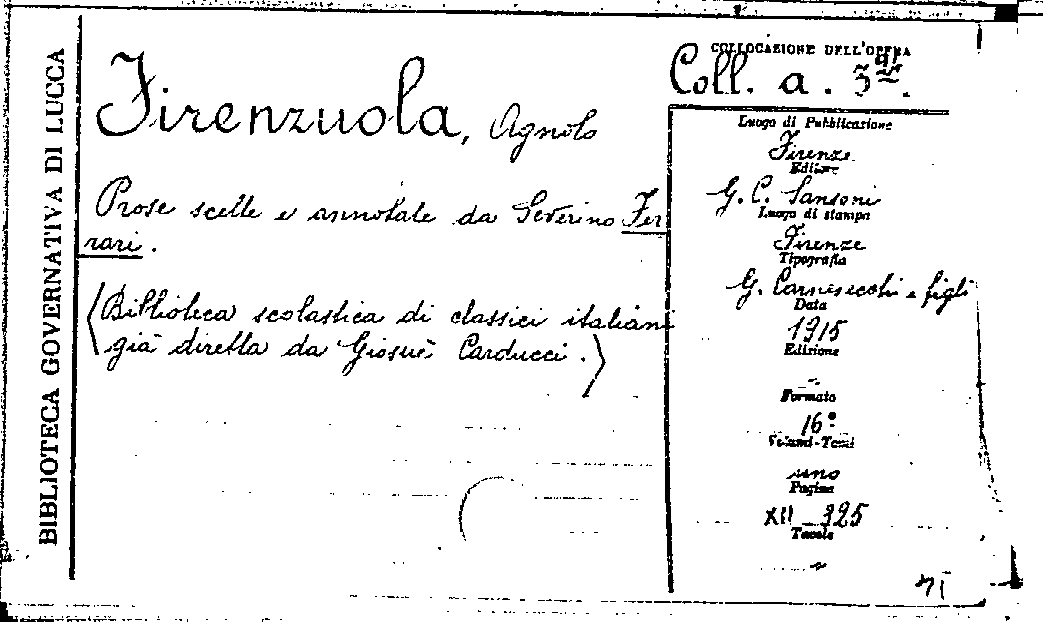 BIBLIOTECA GOVERNATIVA DI LUCCA
Firenzuola, Agnolo
Prose scelte e annotate da Severino Fer
rari.
(Biblioteca scolastica di classici italiani
già diretta da Giosuè Carducci.)
COLLOCAZIONE DELL'OPERA
Coll. a. 3
Luogo di Pubblicazione
Firenze
Editore
G. C. Sansoni
Luogo di stampa
Firenze
Tipografia
G. Carnesecchi e figli
Data
1915
Edizione
Formato
16°
Volumi-Tomi
uno
Pagine
XII_325
Tavole